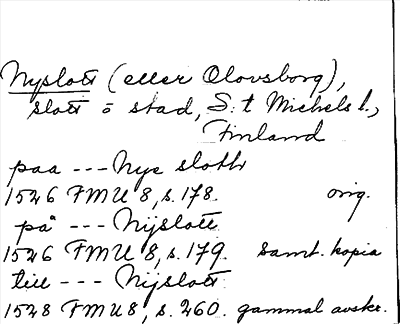 Nyslott (eller Olovsborg),
slott o stad, S:t Michels l.,
Finland
paa --- Nye sloth
1526 FMU 8, s. 178. orig.
på --- Nijslott
1526 FMU 8, s. 179. samt. kopia
till --- Nijslott
1528 FMU 8, s. 260. gammal avskr.